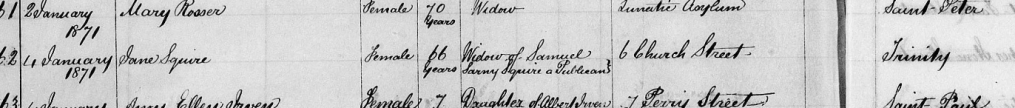 61 2 January 1871 Mary Rosser Female 70 Years Widow Lunatic Asylum Saint Peter
62 4 January 1871 Jane Squire Female 66 Years Widow of Samuel Squire a Publican 6 Church Street Trinity
63 January Ellen Female 7 Daughter of Albert 7 Perry Street Saint Paul